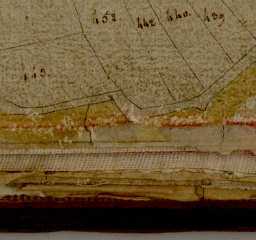 452 442. 440. 439
443.